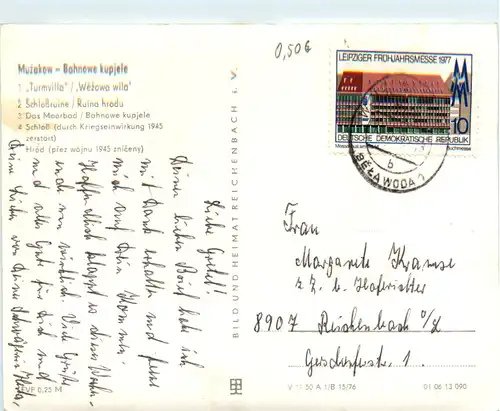 Mužakow – Bahnowe kupjele
1 „Turmvilla" / „Wěžowa wila"
2 Schloßruine / Ruina hrodu
3 Das Moorbad / Bahnowe kupjele
4 Schloß (durch Kriegseinwirkung 1945
zerstört)
Hród (přez wójnu 1945 zničeny)
EVP 0,25 M
Liebe Gretel!
Deinen lieben Brief habe ich
mit Dank erhalten und freue
mich auf Dein Kommen.
Hoffentlich klappt es diesen Wochen-
ende nun wirklich. Viele Grüße
und alles Gute für Dich und
Deine Lieben von Deiner
BILD UND HEIMAT REICHENBACH i. V.
0,50 €
LEIPZIGER FRÜHJAHRSMESSE 1977
MM
10
DEUTSCHE DEMOKRATISCHE REPUBLIK
BĚŁA WODA 1
b
Frau
Margarete Krause
z. Z. b. Hofrichter
8907 Reichenbach O/L
Gersdorferstr. 1.
V 11 50 A 1/B 15/76 01 06 13 090